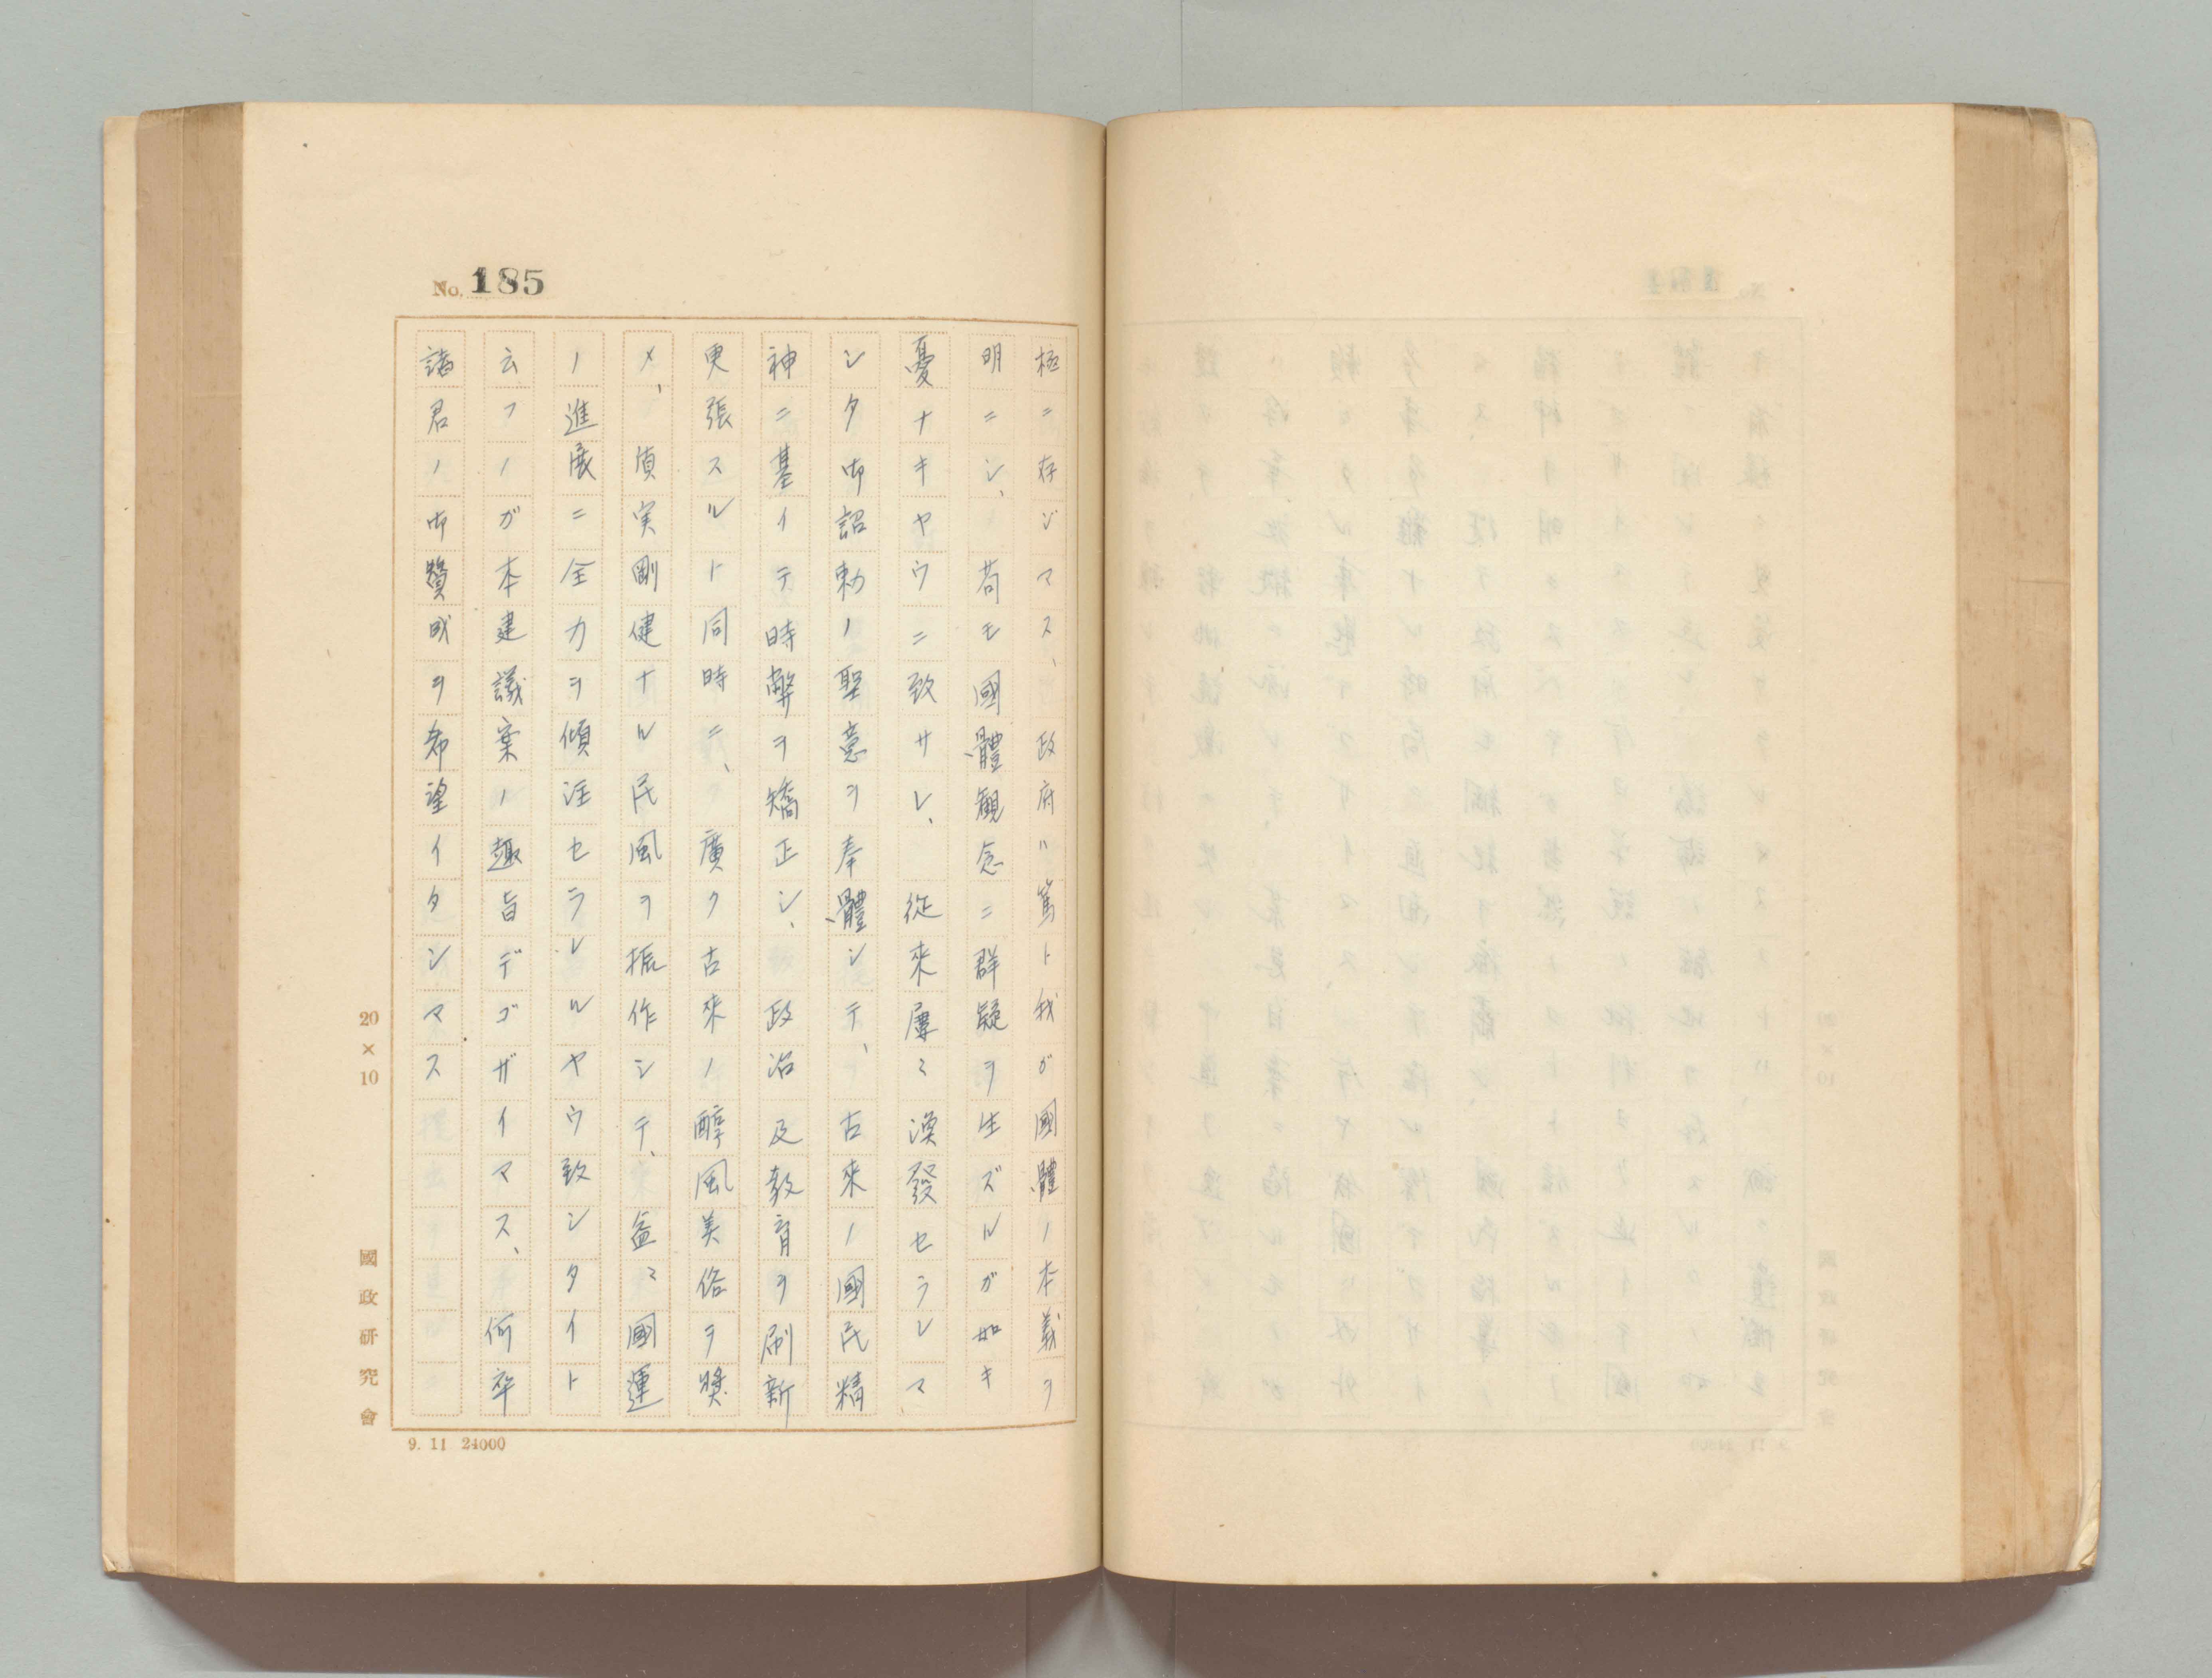 No. 185
極ニ存ジマス、政府ハ篤ト我ガ國體ノ本義ヲ
明ニシ、苟モ國體観念ニ群疑ヲ生ズルガ如キ
憂ナキヤウニ致サレ、従來屢ミ渙發セラレマ
シタ御詔勅ノ聖意ヲ奉體シテ、古來ノ國民精
神ニ基イテ時弊ヲ矯正シ、政治及教育ヲ刷新
更張スルト同時ニ、廣ク古來ノ醇風美俗ヲ奬
メ、質実剛健ナル民風ヲ振作シテ、益ミ國運
ノ進展ニ全力ヲ傾注セラレルヤウ致シタイト
云フノガ本建議案ノ趣旨デゴザイマス、何卒
諸君ノ御贊成ヲ希望イタシマス
20×10
國政研究會
9. 11 24000